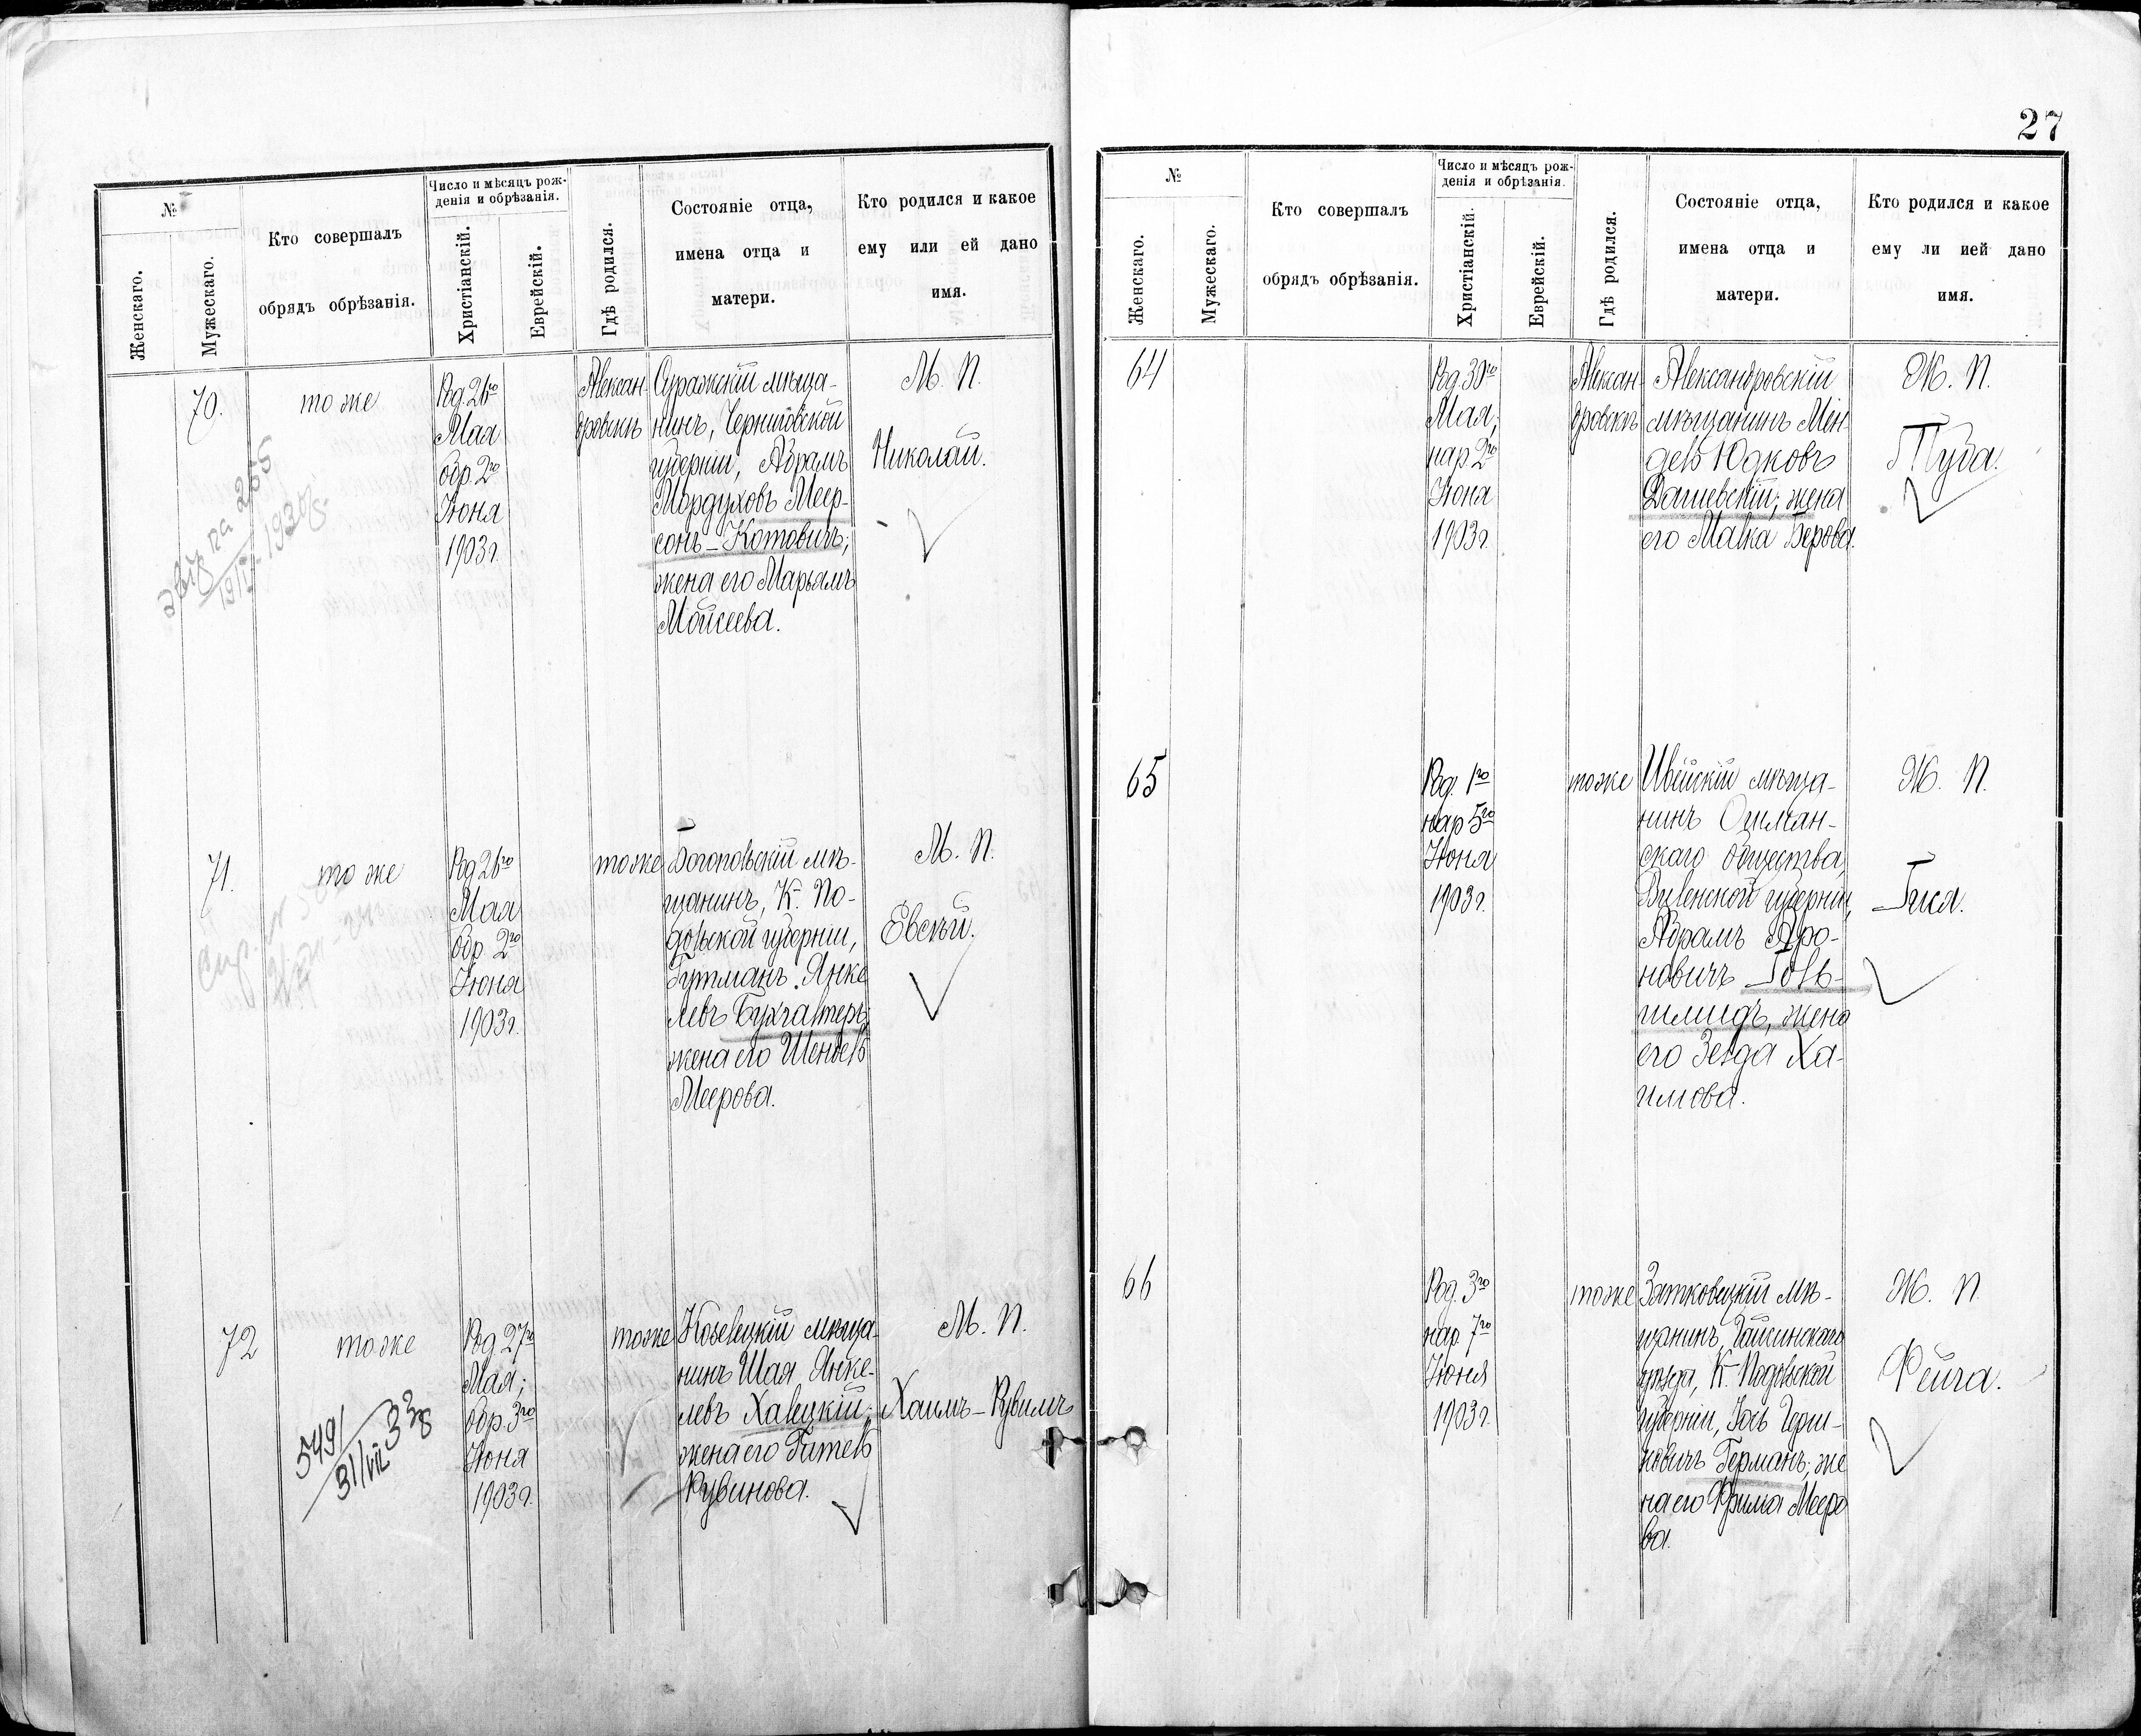 №
Женскаго.
Мужескаго.
Кто совершалъ
обрядъ обрѣзанія.
Число и мѣсяцъ рож-
денія и обрѣзанія.
Христіанскій.
Еврейскій.
Гдѣ родился.
Состояніе отца,
имена отца и
матери.
Кто родился и какое
ему или ей дано
имя.
70.
то же
Род. 26го
Мая
обр. 2го
Іюня
1903 г.
Алексан-
дровскъ
Суражскій мѣща-
нинъ, Черниговской
губерніи, Абрамъ
Мордуховъ Меер-
сонъ-Котовичъ;
жена его Марьямъ
Мойсеева.
М. П.
Николай.
255
19/IV 1930
71.
то же
Род 26го
Мая
обр. 2го
Іюня
1903 г.
тоже
Богопольскій мѣ-
щанинъ, К. По-
дольской губерніи,
Гутманъ Янке
левъ Бухгалтеръ;
жена его Шендель
Меерова.
М. П.
Евсѣй.
72
тоже
Род 27го
Мая;
обр. 3го
Іюня
1903 г.
тоже
Козелецкій мѣща-
нинъ Шая Янке-
левъ Халецкій;
жена его Гитель
Рувинова.
М. П.
Хаимъ-Рувимъ
549/
31/VII 33
27
№
Женскаго.
Мужескаго.
Кто совершалъ
обрядъ обрѣзанія.
Число и мѣсяцъ рож-
денія и обрѣзанія.
Христіанскій.
Еврейскій.
Гдѣ родился.
Состояніе отца,
имена отца и
матери.
Кто родился и какое
ему ли ией дано
имя.
64
Род. 30го
Мая;
нар 2го
Іюня
1903 г.
Алексан-
дровскъ
Александровскій
мѣщанинъ Мен
дель Юдковъ
Дашевскій; жена
его Малка Берова.
Ж. П.
65
Род. 1го
нар 5го
Іюня
1903 г.
тоже
Ивейскій мѣща-
нинъ Ошмян-
скаго общества,
Виленской губерніи,
Абрамъ Аро-
новичъ Голь-
шмидъ, жена
его Зелда Ха-
имова.
Ж. П.
66
Род. 3го
нар 7го
Іюня
1903 г.
тоже
мѣ-
щанинъ, Гайсинскаго
уѣзда, К. Подольской
губерніи, Іось Герш-
ковичъ Германъ; же
на его Фрима Мееро
ва.
Ж. П.
Фейга.